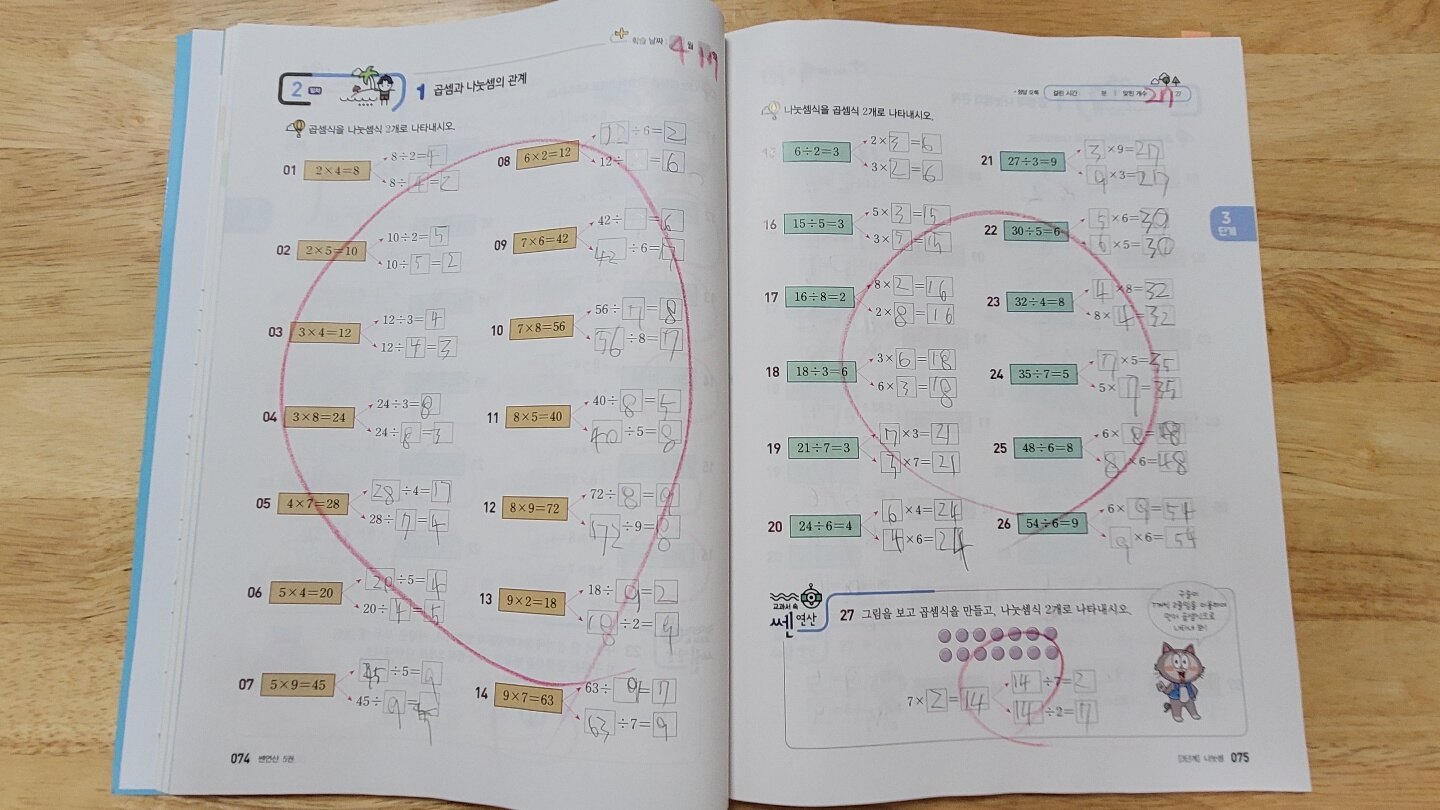 학습 날짜 4 월
2 일차
1 곱셈과 나눗셈의 관계
곱셈식을 나눗셈식 2개로 나타내시오.
01 2×4=8
8÷2=4
8÷4=2
02 2×5=10
10÷2=5
10÷5=2
03 3×4=12
12÷3=4
12÷4=3
04 3×8=24
24÷3=8
24÷8=3
05 4×7=28
28÷4=7
28÷7=4
06 5×4=20
20÷5=4
20÷4=5
07 5×9=45
45÷5=9
45÷9=5
08 6×2=12
12÷6=2
12÷ =6
09 7×6=42
42÷ =6
42÷6=7
10 7×8=56
56÷7=8
56÷8=7
11 8×5=40
40÷8=5
40÷5=8
12 8×9=72
72÷8=9
72÷9=8
13 9×2=18
18÷9=2
18÷2=9
14 9×7=63
63÷9=7
63÷7=9
074 쎈연산 5권
• 정답 쪽 걸린 시간 분 맞힌 개수 27 27
나눗셈식을 곱셈식 2개로 나타내시오.
6÷2=3
2×3=6
3×2=6
16 15÷5=3
5×3=15
3×5=15
17 16÷8=2
8×2=16
2×8=16
18 18÷3=6
3×6=18
6×3=18
19 21÷7=3
7×3=21
3×7=21
20 24÷6=4
6×4=24
4×6=24
21 27÷3=9
3×9=27
9×3=27
22 30÷5=6
5×6=30
6×5=30
23 32÷4=8
4×8=32
8×4=32
24 35÷7=5
7×5=35
5×7=35
25 48÷6=8
6×8=48
8×6=48
26 54÷6=9
6×9=54
9×6=54
3
단계
교과서 속
쎈 연산
27 그림을 보고 곱셈식을 만들고, 나눗셈식 2개로 나타내시오.
7×2=14
14÷7=2
14÷2=7
구슬이
7개씩 2줄임을 이용하여
먼저 곱셈식으로
나타내 봐!
[3단계] 나눗셈 075